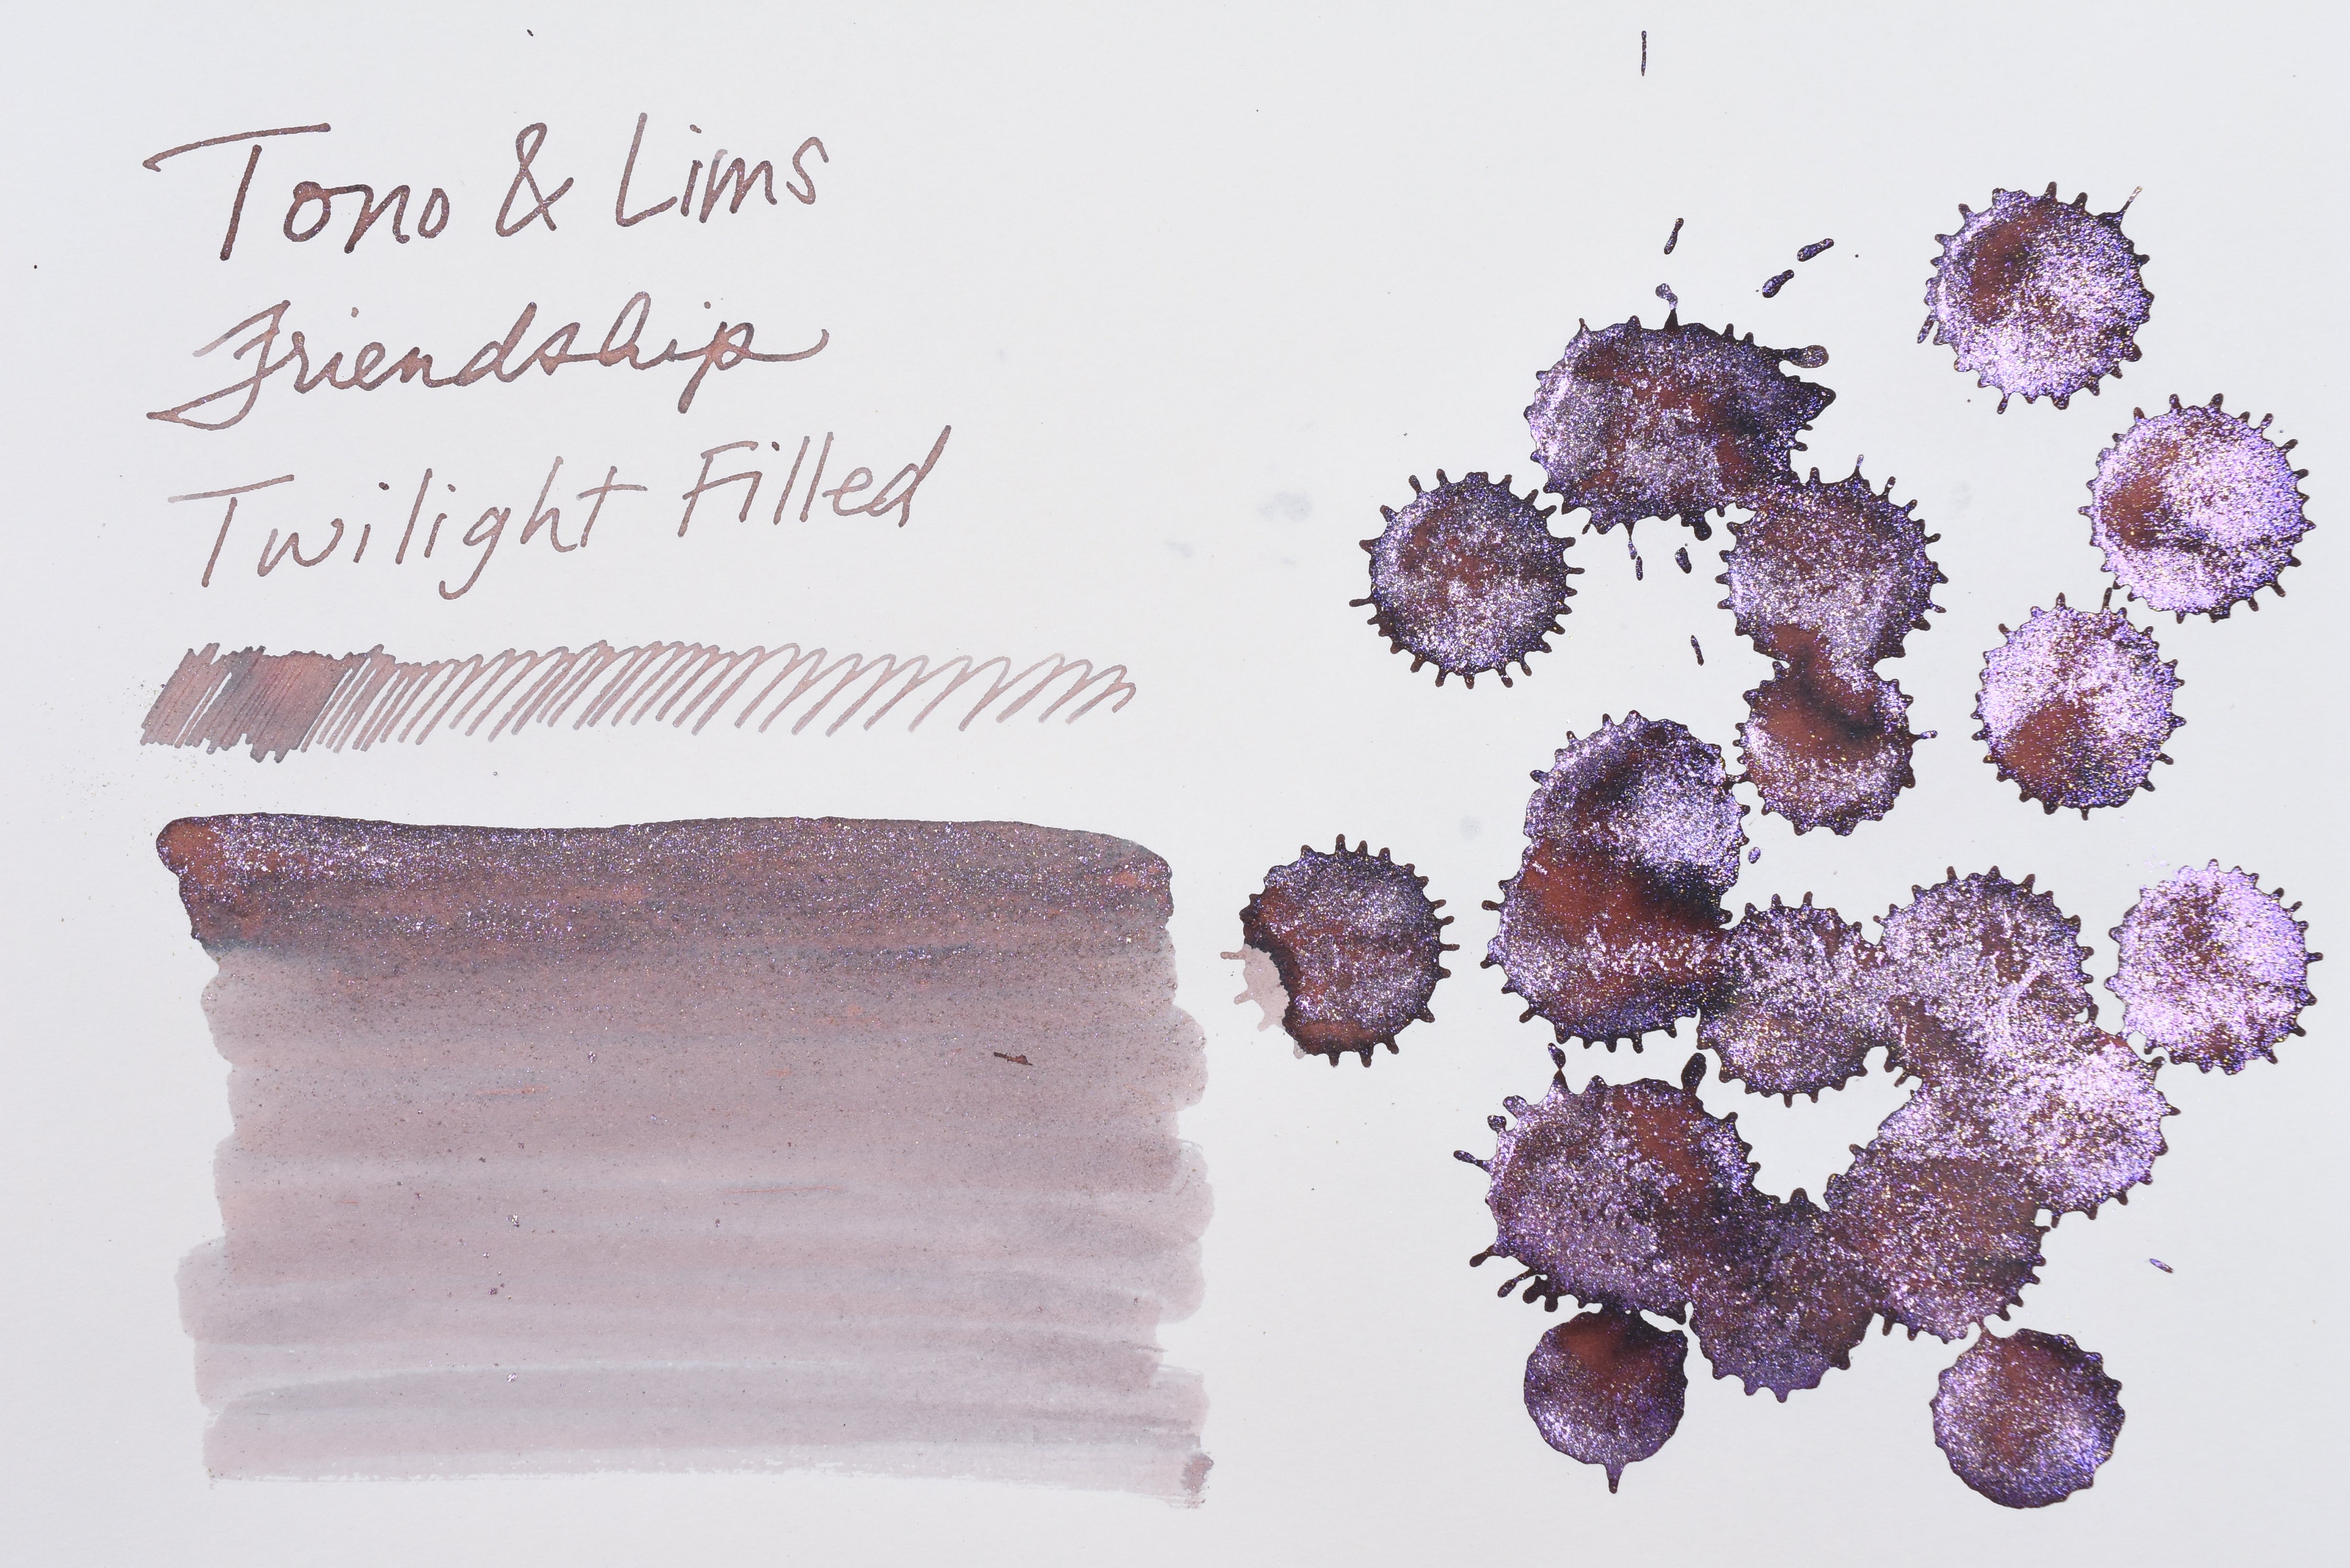 Tono & Lims
Friendship
Twilight Filled